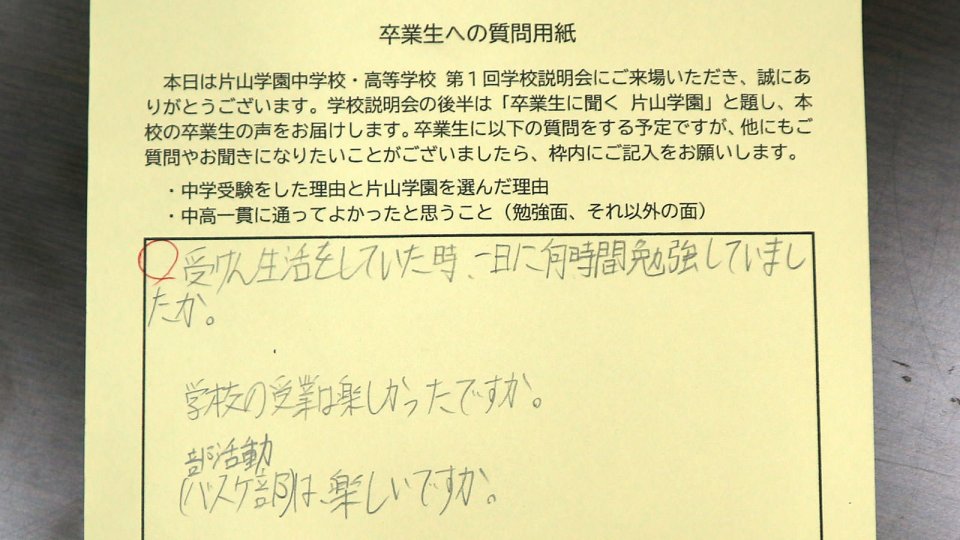 卒業生への質問用紙
本日は片山学園中学校・高等学校 第１回学校説明会にご来場いただき、誠にあ
りがとうございます。学校説明会の後半は「卒業生に聞く 片山学園」と題し、本
校の卒業生の声をお届けします。卒業生に以下の質問をする予定ですが、他にもご
質問やお聞きになりたいことがございましたら、枠内にご記入をお願いします。
・中学受験をした理由と片山学園を選んだ理由
・中高一貫に通ってよかったと思うこと（勉強面、それ以外の面）
受けん生活をしていた時、一日に何時間勉強していまし
たか。
学校の受業は楽しかったですか。
部活動
(バスケ部)は、楽しいですか。